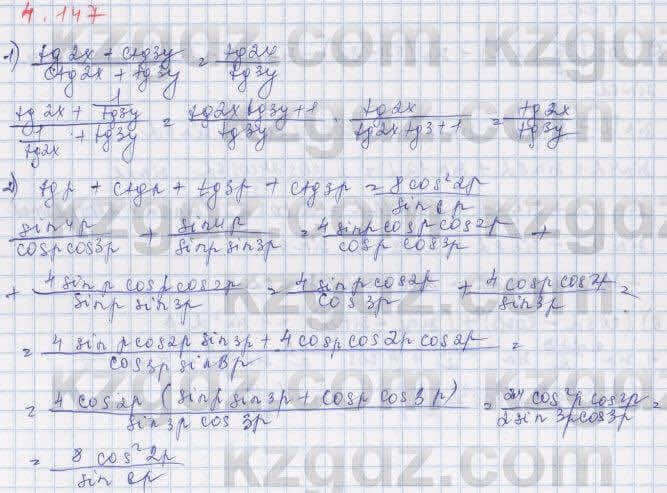 4.147
1) (tg2x + ctg3y)/(ctg2x + tg3y) = tg2x/tg3y
(tg2x + 1/tg3y)/(1/tg2x + tg3y) = (tg2x tg3y + 1)/tg3y · tg2x/(tg2x tg3 + 1) = tg2x/tg3y
2) tgp + ctgp + tg3p + ctg3p = 8cos²2p/sin6p
sin4p/(cosp cos3p) + sin4p/(sinp sin3p) = 4sinp cosp cos2p/(cosp cos3p) +
+ 4sinp cosp cos2p/(sinp sin3p) = 4sinp cos2p/cos3p + 4cosp cos2p/sin3p =
= (4sinp cos2p sin3p + 4cosp cos2p cos2p)/(cos3p sin3p) =
= 4cos2p (sinp sin3p + cosp cos3p)/(sin3p cos3p) = cos2p cos2p/(2sin3p cos3p) =
= 8cos²2p/sin6p
kzgdz.com